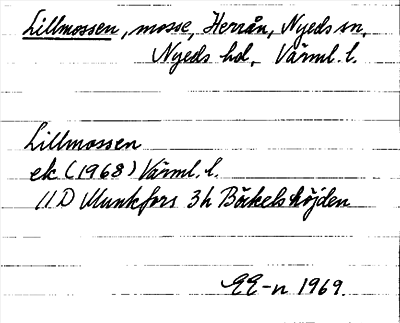 Lillmossen, mosse, Herrån, Nyeds sn,
Nyeds hd, Värml. l.
Lillmossen
ek (1968) Värml. l.
11D Munkfors 3h Bäckelshöjden
EE-n 1969.